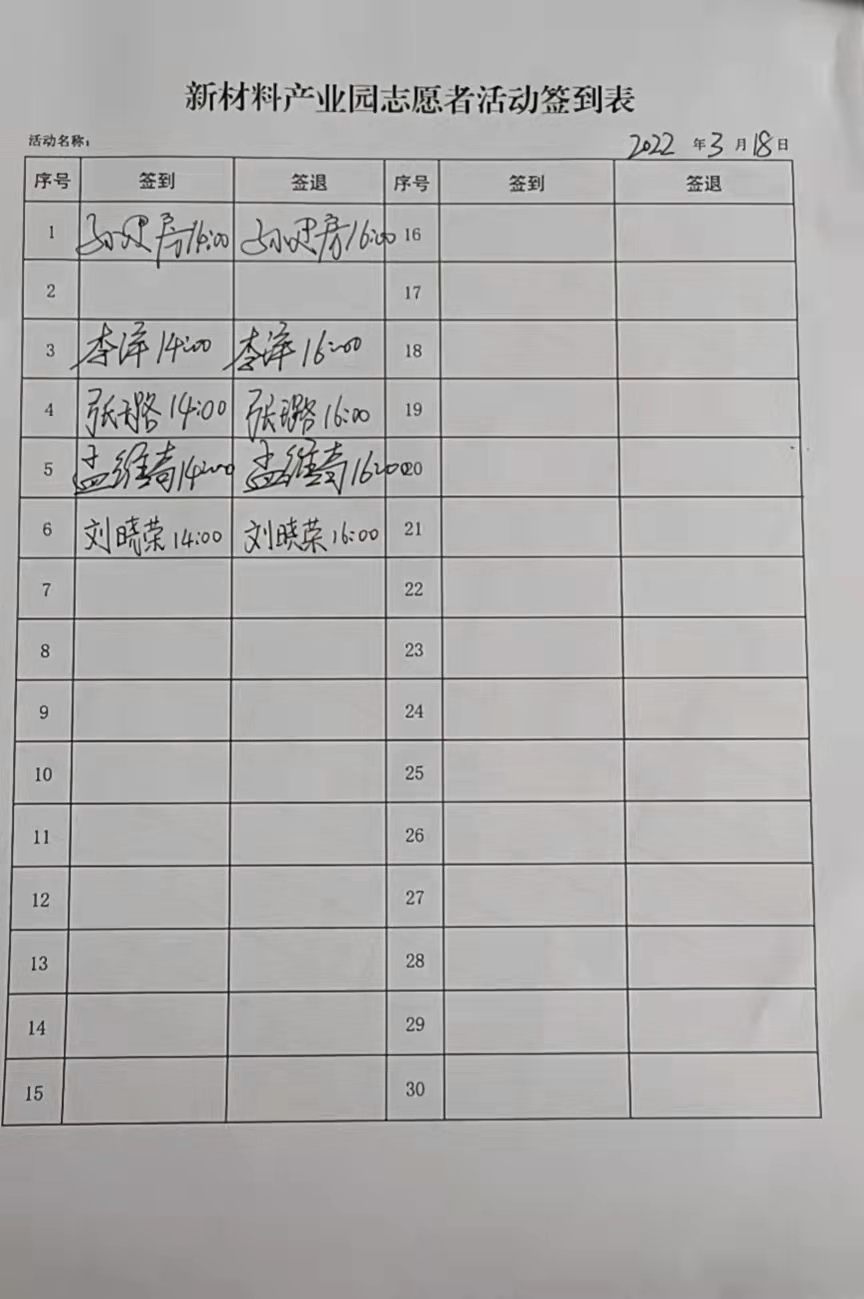 新材料产业园志愿者活动签到表
活动名称： 2022 年 3 月 18 日
序号 签到 签退 序号 签到 签退
1 14:00 16:00 16
2 17
3 李洋 14:00 李洋 16:00 18
4 张璐 14:00 张璐 16:00 19
5 孟维奇 14:00 孟维奇 16:00 20
6 刘晓荣 14:00 刘晓荣 16:00 21
7 22
8 23
9 24
10 25
11 26
12 27
13 28
14 29
15 30